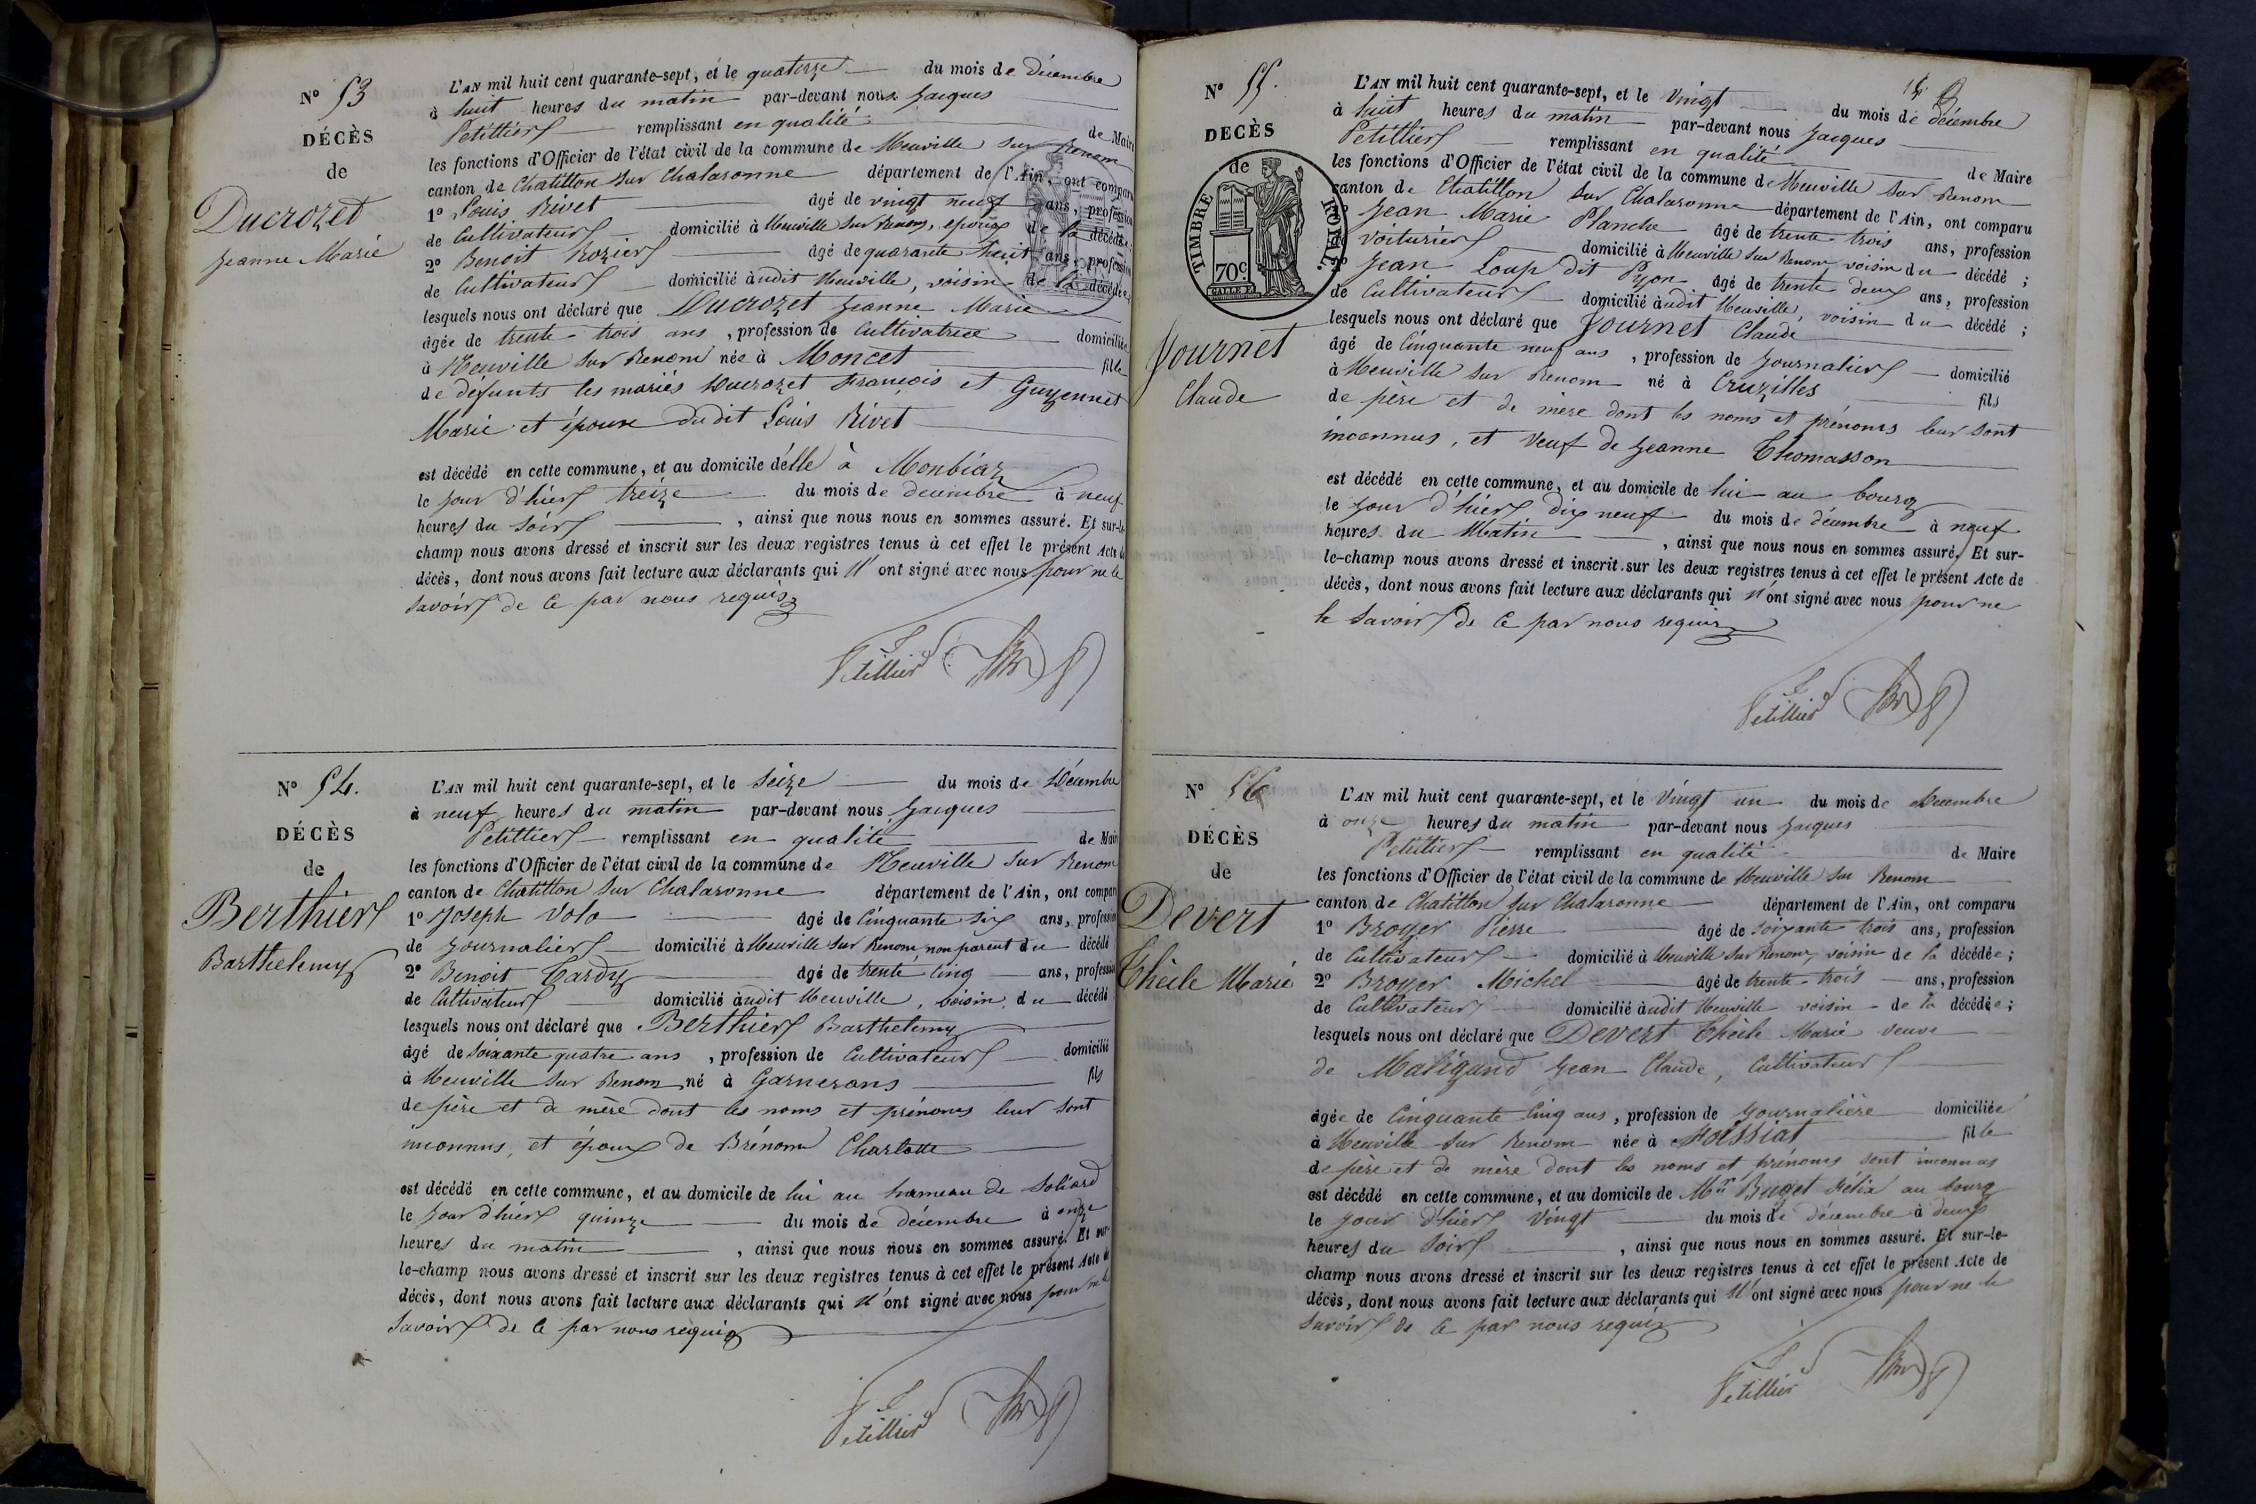 N° 53
DÉCÈS
de
Ducrozet
Jeanne Marie
L'AN mil huit cent quarante-sept, et le quatorze du mois de décembre
à huit heures du matin par-devant nous Jacques
Petitlier remplissant en qualité de Maire
les fonctions d'Officier de l'état civil de la commune de Neuville sur Renom
canton de Chatillon sur Chalaronne département de l'Ain, ont comparu
1° Louis Rivet âgé de vingt neuf ans, profession
de Cultivateur domicilié à Neuville sur Renom, époux de la décédée
2° Benoit Rozier âgé de quarante huit ans, profession
de Cultivateur domicilié audit Neuville, voisin de la décédée,
lesquels nous ont déclaré que Ducrozet Jeanne Marie
âgée de trente trois ans, profession de Cultivatrice domiciliée
à Neuville sur Renom née à Moncet fille
de défunts les mariés Ducrozet François et Guyennet
Marie et épouse dudit Louis Rivet
est décédé en cette commune, et au domicile d'elle à Monbiaz
le jour d'hier treize du mois de décembre à neuf
heures du soir, ainsi que nous nous en sommes assuré. Et sur-le-
champ nous avons dressé et inscrit sur les deux registres tenus à cet effet le présent Acte de
décès, dont nous avons fait lecture aux déclarants qui n'ont signé avec nous pour ne le
savoir de ce par nous requis
Petitlier
N° 54.
DÉCÈS
de
Berthier
Barthelemy
L'AN mil huit cent quarante-sept, et le seize du mois de Décembre
à neuf heures du matin par-devant nous Jacques
Petitlier remplissant en qualité de Maire
les fonctions d'Officier de l'état civil de la commune de Neuville sur Renom
canton de Chatillon sur Chalaronne département de l'Ain, ont comparu
1° Joseph Volo âgé de Cinquante six ans, profession
de Journalier domicilié à Neuville sur Renom, non parent du décédé
2° Benoit Tardy âgé de trente cinq ans, profession
de Cultivateur domicilié audit Neuville, voisin du décédé
lesquels nous ont déclaré que Berthier Barthelemy
âgé de soixante quatre ans, profession de Cultivateur domicilié
à Neuville sur Renom né à Garnerans fils
de père et de mère dont les noms et prénoms leur sont
inconnus, et époux de Brénom Charlotte
est décédé en cette commune, et au domicile de lui au hameau de Soliard
le jour d'hier quinze du mois de décembre à onze
heures du matin, ainsi que nous nous en sommes assuré. Et sur-
le-champ nous avons dressé et inscrit sur les deux registres tenus à cet effet le présent Acte de
décès, dont nous avons fait lecture aux déclarants qui n'ont signé avec nous pour ne le
savoir de ce par nous requis
Petitlier
N° 55.
DECÈS
de
TIMBRE ROYAL.
70c
Journet
Claude
L'AN mil huit cent quarante-sept, et le vingt du mois de décembre
à huit heures du matin par-devant nous Jacques
Petitlier remplissant en qualité de Maire
les fonctions d'Officier de l'état civil de la commune de Neuville sur Renom
canton de Chatillon sur Chalaronne département de l'Ain, ont comparu
Jean Marie Planche âgé de trente trois ans, profession
de voiturier domicilié à Neuville sur Renom voisin du décédé ;
Jean Loup dit Pyon âgé de trente deux ans, profession
de Cultivateur domicilié audit Neuville, voisin du décédé ;
lesquels nous ont déclaré que Journet Claude
âgé de Cinquante neuf ans, profession de Journalier domicilié
à Neuville sur Renom né à Cruzilles fils
de père et de mère dont les noms et prénoms leur sont
inconnus, et veuf de Jeanne Thomasson
est décédé en cette commune, et au domicile de lui au bourg
le jour d'hier dix neuf du mois de décembre à neuf
heures du Matin, ainsi que nous nous en sommes assuré. Et sur-
le-champ nous avons dressé et inscrit sur les deux registres tenus à cet effet le présent Acte de
décès, dont nous avons fait lecture aux déclarants qui n'ont signé avec nous pour ne
le savoir de ce par nous requis
Petitlier
N° 56
DÉCÈS
de
Devert
Thècle Marie
L'AN mil huit cent quarante-sept, et le Vingt un du mois de décembre
à onze heures du matin par-devant nous Jacques
Petitlier remplissant en qualité de Maire
les fonctions d'Officier de l'état civil de la commune de Neuville sur Renom
canton de Chatillon sur Chalaronne département de l'Ain, ont comparu
1° Broyer Pierre âgé de soixante trois ans, profession
de Cultivateur domicilié à Neuville sur Renom, voisin de la décédée ;
2° Broyer Michel âgé de trente trois ans, profession
de Cultivateur domicilié audit Neuville voisin de la décédée ;
lesquels nous ont déclaré que Devert Thècle Marie veuve
de Maligand Jean Claude, Cultivateur
âgée de Cinquante Cinq ans, profession de Journalière domiciliée
à Neuville sur Renom née à Foissiat fille
de père et de mère dont les noms et prénoms sont inconnus
est décédé en cette commune, et au domicile de Mr Buget Félix au bourg
le jour d'hier Vingt du mois de décembre à deux
heures du Soir, ainsi que nous nous en sommes assuré. Et sur-le-
champ nous avons dressé et inscrit sur les deux registres tenus à cet effet le présent Acte de
décès, dont nous avons fait lecture aux déclarants qui n'ont signé avec nous pour ne le
savoir de ce par nous requis
Petitlier